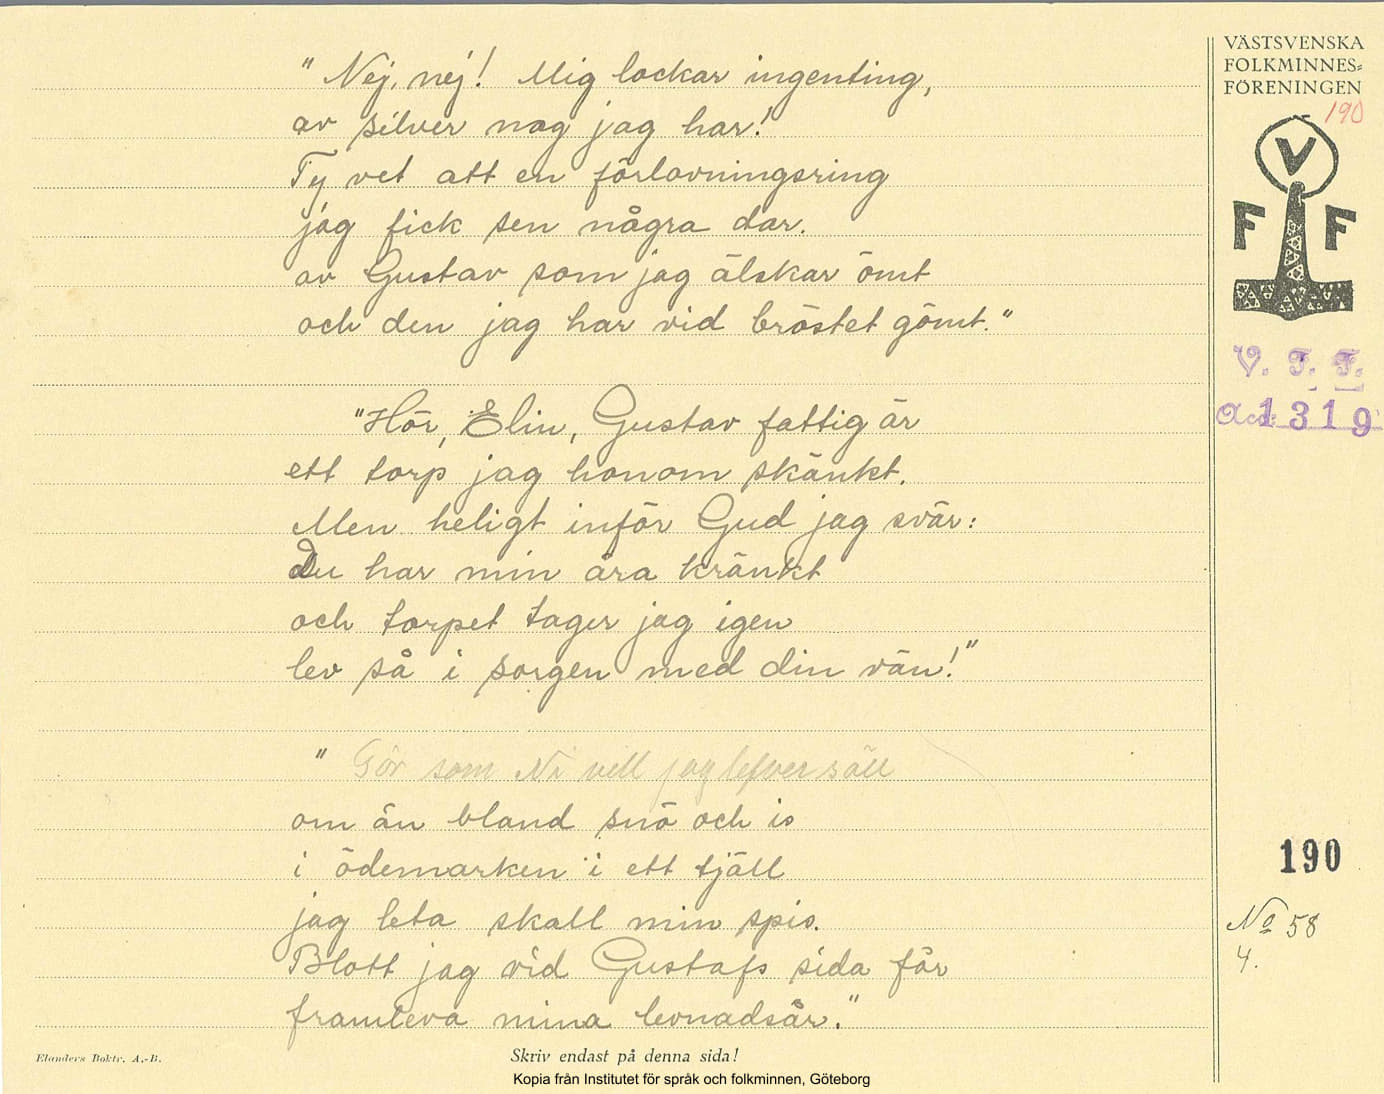 "Nej, nej! Mig lockar ingenting,
av silver nog jag har!
Ty vet att en förlovningsring
jag fick sen några dar.
av Gustav som jag älskar ömt
och den jag har vid bröstet gömt."
"Hör, Elin, Gustav fattig är
ett torp jag honom skänkt.
Men heligt inför Gud jag svär:
Du har min ära kränkt
och torpet tager jag igen
lev så i sorgen med din vän!"
" Gör som Ni vill jag lefver säll
om än bland snö och is
i ödemarken i ett tjäll
jag leta skall min spis.
Blott jag vid Gustafs sida får
framleva mina levnadsår."
Elanders Boktr. A.-B.
Skriv endast på denna sida!
Kopia från Institutet för språk och folkminnen, Göteborg
VÄSTSVENSKA
FOLKMINNES=
FÖRENINGEN
190
V
F F
V. F. F.
Acc: 1319
190
No 58
4.